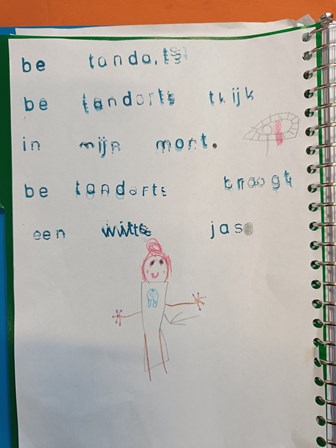 be tandarts
be tandorts tkijk
in mijn mont.
be tandorts traagt
een witte jas